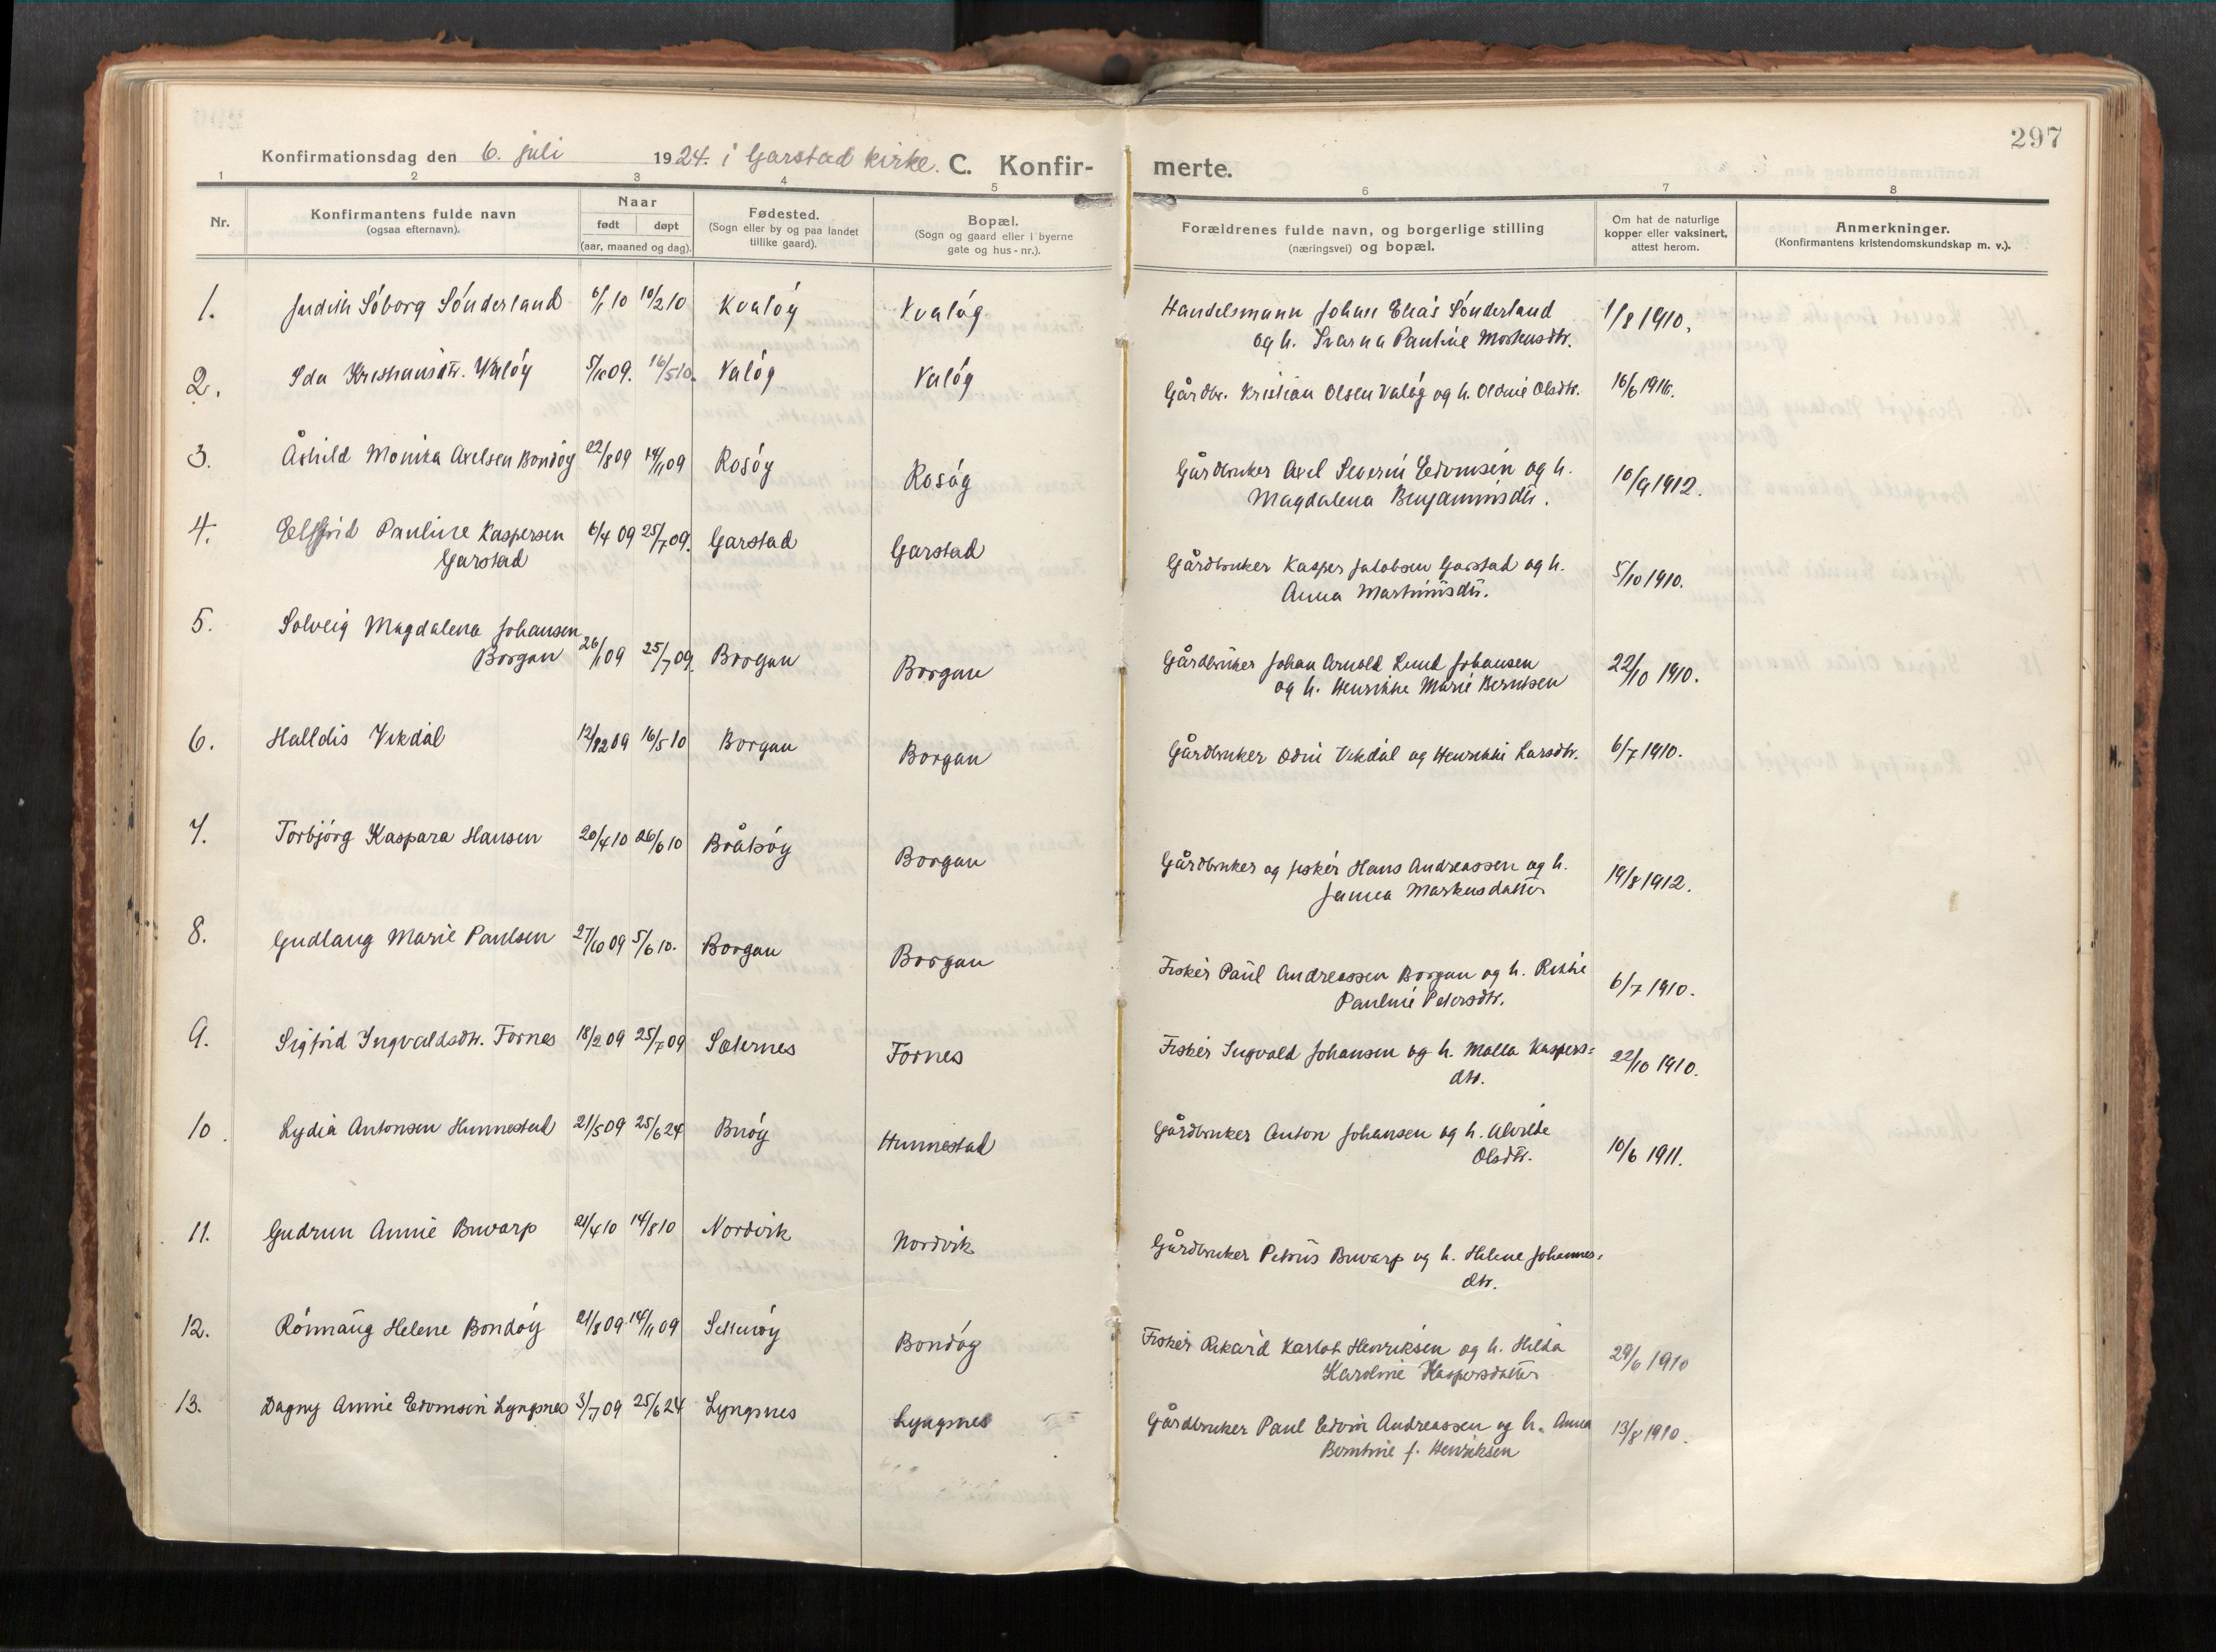 297
Konfirmationsdag den 6. juli 1924. i Garstad kirke. C. Konfir- merte.
1 2 3 4 5 6 7 8
Nr.
Konfirmantens fulde navn
(ogsaa efternavn).
Naar
født døpt
(aar, maaned og dag).
Fødested.
(Sogn eller by og paa landet
tillike gaard).
Bopæl.
(Sogn og gaard eller i byerne
gate og hus-nr.).
Forældrenes fulde navn, og borgerlige stilling
(næringsvei) og bopæl.
Om hat de naturlige
kopper eller vaksinert,
attest herom.
Anmerkninger.
(Konfirmantens kristendomskundskap m. v.).
1. Judith Söborg Sönderland 6/1 10 10/2 10 Kvalöy Kvalöy Handelsmann Johan Elias Sönderland 1/8 1910.
og h. Pauline Markusdtr.
2. Ida Kristiansdtr. Valöy 5/10 09. 16/5 10. Valöy Valöy Gårdbr. Kristian Olsen Valöy og h. Oldine Olsdtr. 16/6 1916.
3. Åshild Monika Axelsen Bondöy 22/8 09 14/11 09 Rosöy Rosöy Gårdbruker Axel Severin Edvinsen og h. 10/9 1912.
Magdalena Benjaminsdtr.
4. Elfrid Pauline Kaspersen 6/4 09 25/7 09. Garstad Garstad Gårdbruker Kasper Jakobsen Garstad og h. 5/10 1910.
Garstad Anna Martinusdtr.
5. Solveig Magdalena Johansen
Borgan 26/1 09 25/7 09. Borgan Borgan Gårdbruker Johan Arnold Lund Johansen 22/10 1910.
og h. Henrikke Marie Berntsen
6. Halldis Vikdal 12/12 09 16/5 10 Borgan Borgan Gårdbruker Odin Vikdal og Henrikke Larsdtr. 6/7 1910.
7. Torbjörg Kaspara Hansen 20/4 10 26/6 10 Bråksöy Borgan Gårdbruker og fisker Hans Andreassen og h. 19/8 1912.
Markusdatter
8. Gudlaug Marie Paulsen 27/10 09 5/6 10. Borgan Borgan Fisker Paul Andreassen Borgan og h. Rikke 6/7 1910.
Pauline Petersdtr.
9. Sigfrid Ingvaldsdtr. Fornes 18/2 09 25/7 09 Sæternes Fornes Fisker Ingvald Johansen og h. Malla Kaspers= 22/10 1910.
dtr.
10. Lydia Antonsen Hunnestad 21/5 09 25/6 24 Buöy Hunnestad Gårdbruker Anton Johansen og h. Alvilde 10/6 1911.
Olsdtr.
11. Gudrun Annie Buvarp 21/4 10 14/8 10 Nordvik Nordvik Gårdbruker Petrus Buvarp og h. Helene Johannes=
dtr.
12. Rönnaug Helene Bondöy 21/8 09 14/11 09 Setternöy Bondöy Fisker Rikard Karlot Henriksen og h. Hilda 29/6 1910
Karoline Kaspersdatter
13. Dagny Annie Edvinsen Lyngsnes 3/7 09 25/6 24 Lyngsnes Lyngsnes Gårdbruker Paul Edvin Andreassen og h. Anna 13/8 1910.
Berntine f. Henriksen